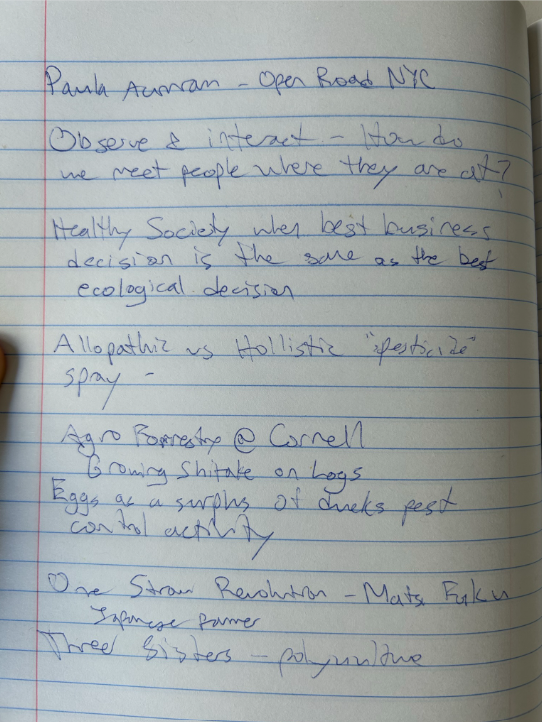 Paula - Open Road NYC
Observe & interact - How do
we meet people where they are at?
Healthy Society when best business
decision is the same as the best
ecological decision
Allopathic vs Hollistic "pesticide"
spray -
Agro Forrestry @ Cornell
Growing Shitake on Logs
Eggs as a surplus of ducks pest
control activity
One Straw Revolution - Mats Fuku
Japanese farmer
Three Sisters - polyculture